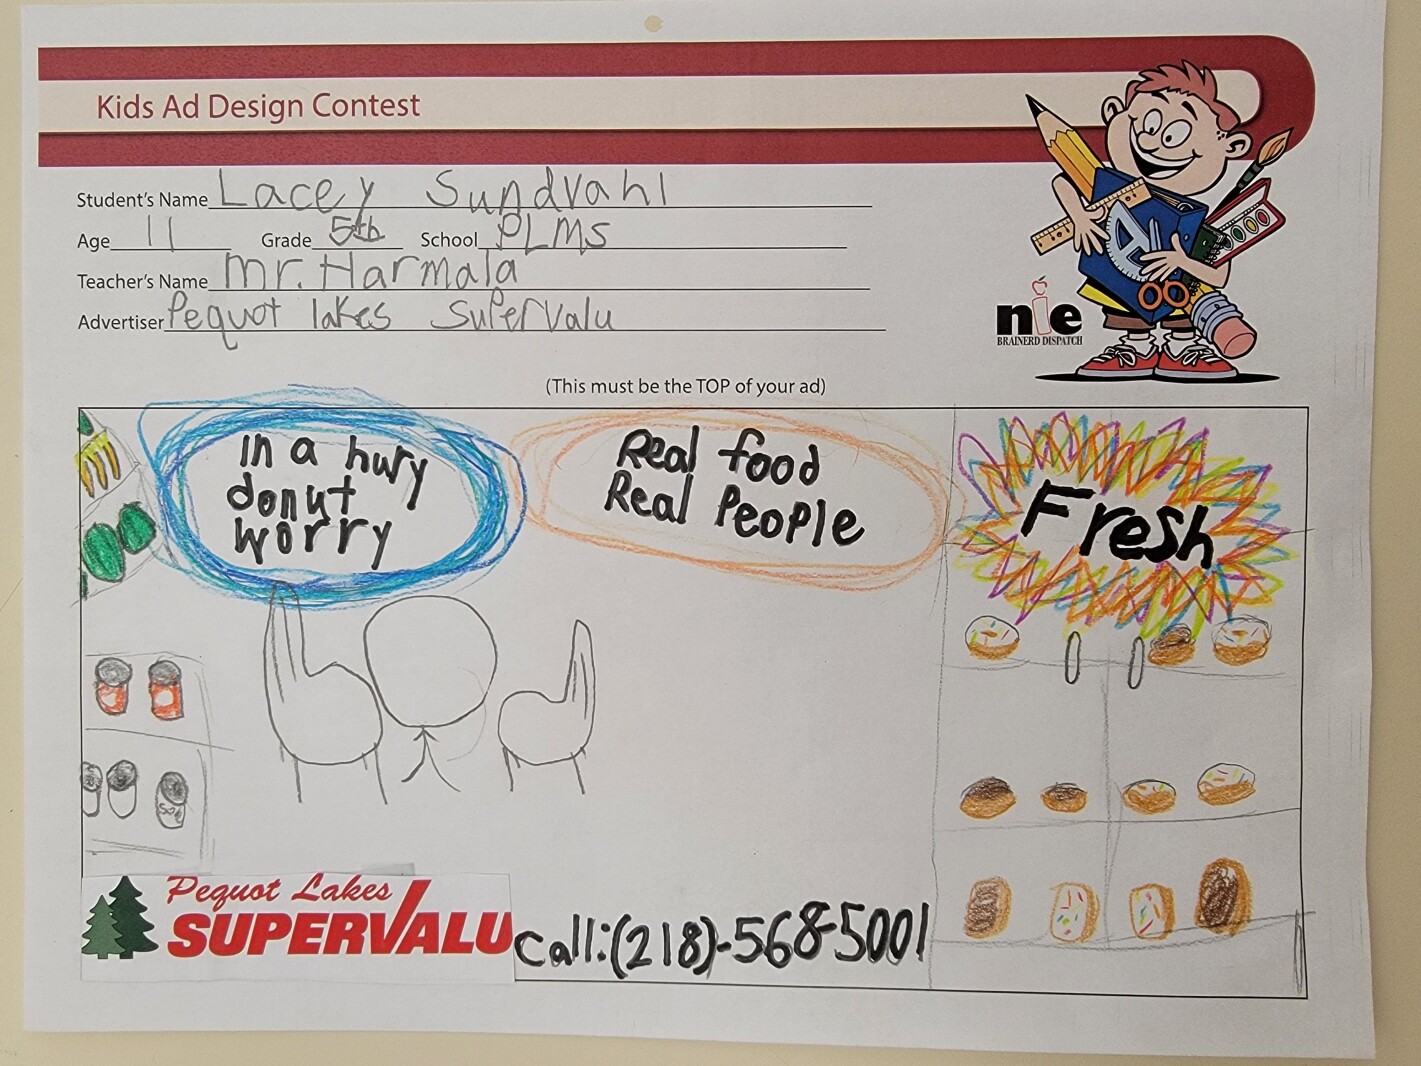 Kids Ad Design Contest
Student's Name Lacey Sundvahl
Age 11 Grade 5th School PLMS
Teacher's Name Mr. Harmala
Advertiser Pequot lakes Supervalu
nie
BRAINERD DISPATCH
(This must be the TOP of your ad)
in a hury
donut
worry
Real food
Real People
Fresh
Pequot Lakes
SUPERVALU
call:(218)-568-5001